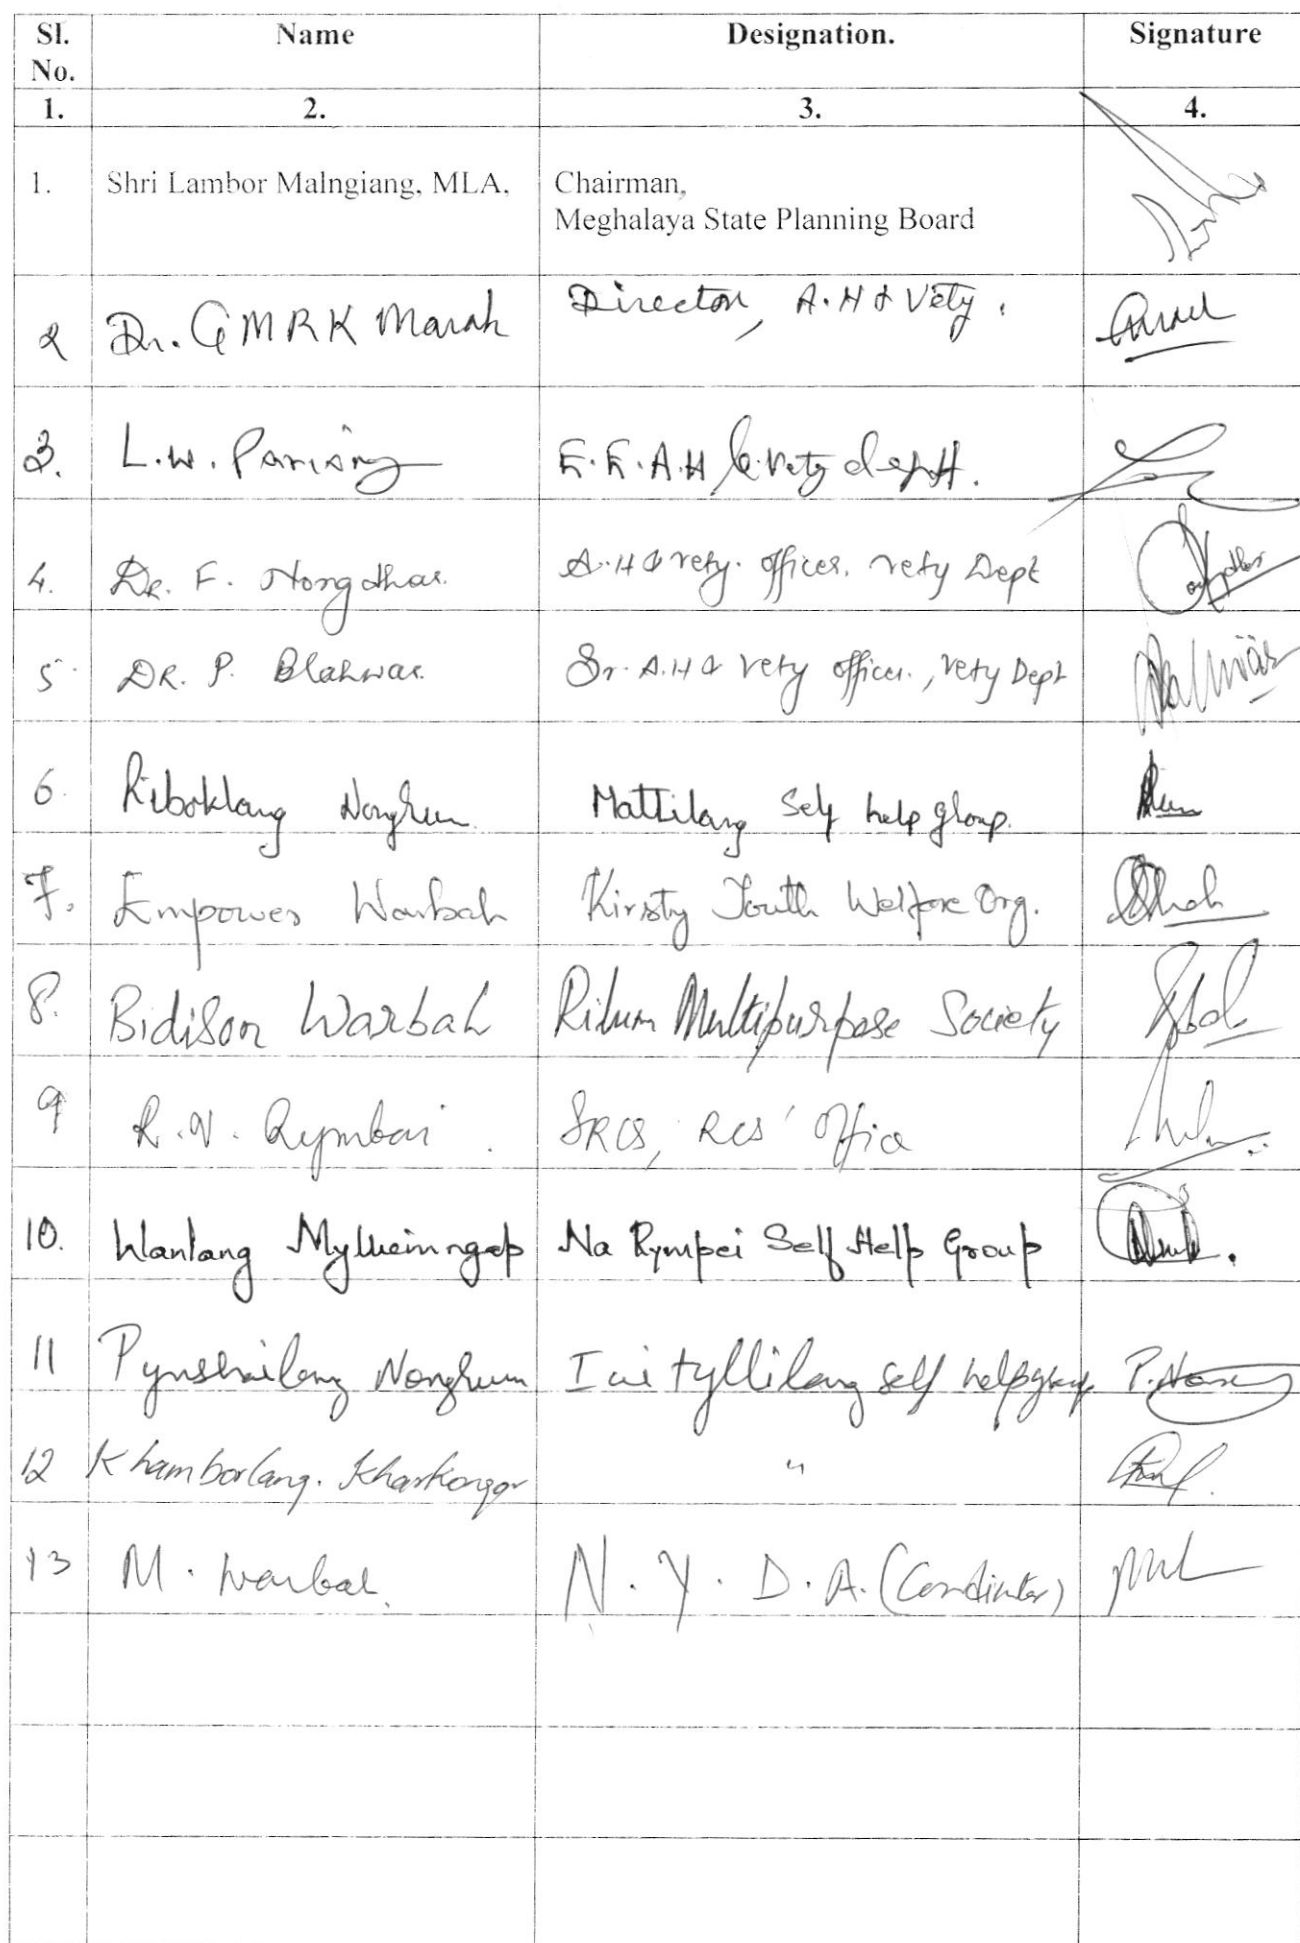 Sl. No. Name Designation. Signature
1. 2. 3. 4.
1. Shri Lambor Malngiang, MLA, Chairman,
Meghalaya State Planning Board
2 Dr. G M R K Marak Director, A.H & Vety.
3. L.W. Pariong E.E. A.H & Vety deptt.
4. Dr. F. Nongdhar. A.H & Vety. Officer. Vety Dept
5. DR. P. Blahwar. Sr. A.H & Vety Officer., Vety Dept
6. Riboklang Nongrum Mattilang Self help group.
7. Empower Warbah Kirsty Youth Welfare Org.
8. Bidison Warbah Rilum Multipurpose Society
9 R.V. Rymbai. SRCS, RCS' Office
10. Wanlang Mylliemngap Na Rympei Self Help Group
11 Pynshailang Nongrum Iai tyllilang self help group P.
12 Khamborlang. Kharkongor "
13 M. Warbah. N.Y.D.A. (Cordinator)